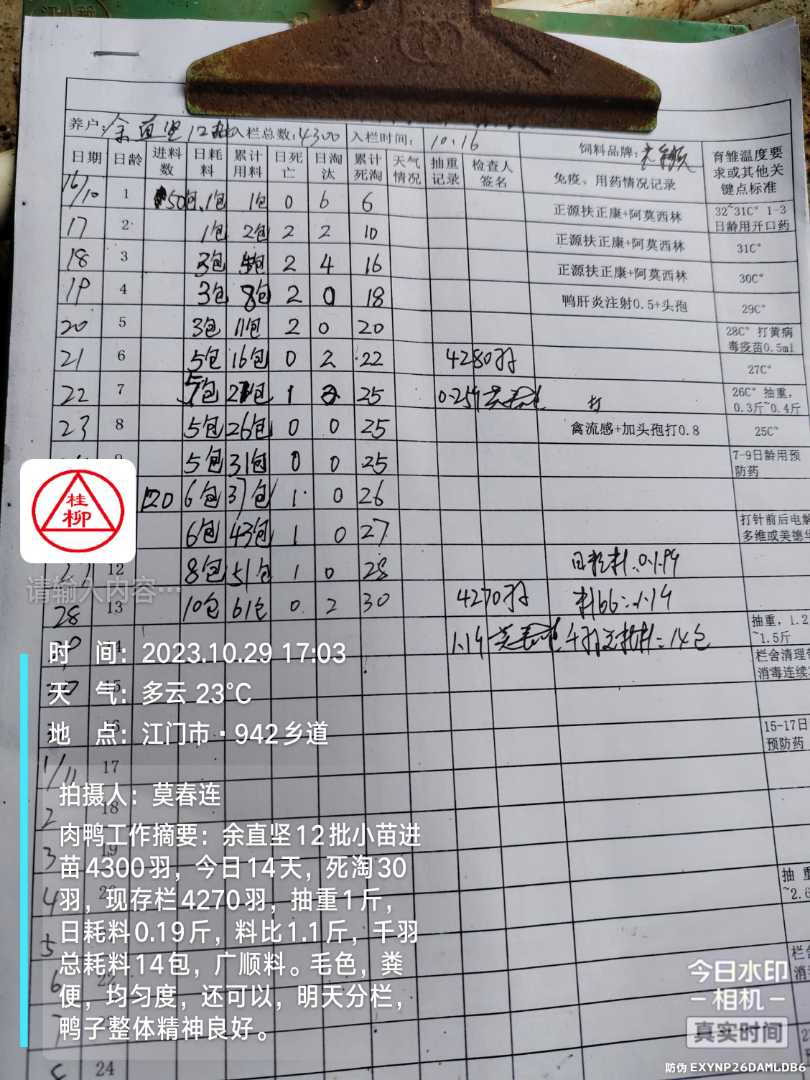 养户: 余直坚12批 入栏总数: 4300 入栏时间: 10.16 饲料品牌:
日期 日龄 进料数 日耗料 累计用料 日死亡 日淘汰 累计死淘 天气情况 抽重记录 检查人签名 免疫、用药情况记录 育雏温度要求或其他关键点标准
16/10 1 50包 1包 1包 0 6 6 正源扶正康+阿莫西林 32~31C° 1-3日龄用开口药
17 2 1包 2包 2 2 10 正源扶正康+阿莫西林 31C°
18 3 3包 5包 2 4 16 正源扶正康+阿莫西林 30C°
19 4 3包 8包 2 0 18 鸭肝炎注射0.5+头孢 29C°
20 5 3包 11包 2 0 20 28C° 打黄病毒疫苗0.5ml
21 6 5包 16包 0 2 22 4280羽 27C°
22 7 5包 21包 1 2 25 0.25 打 26C° 抽重，0.3斤~0.4斤
23 8 5包 26包 0 0 25 禽流感+加头孢打0.8 25C°
5包 31包 0 0 25 7-9日龄用预防药
120 6包 37包 1 0 26
6包 43包 1 0 27 打针前后电解多维或美德
12 8包 51包 1 0 28 日耗料:0.19
28 13 10包 61包 0 2 30 4270羽 料比:1.1
1.1 千羽总耗料=14包 抽重，1.2~1.5斤
栏舍清理
消毒连续
15-17日
预防药
1/11 17
2 18
3
4
抽重
~2.6
5
6
24
桂柳
请输入内容…
时 间: 2023.10.29 17:03
天 气: 多云 23°C
地 点: 江门市·942乡道
拍摄人: 莫春连
肉鸭工作摘要: 余直坚12批小苗进
苗4300羽，今日14天，死淘30
羽，现存栏4270羽，抽重1斤，
日耗料0.19斤，料比1.1斤，千羽
总耗料14包，广顺料。毛色，粪
便，均匀度，还可以，明天分栏，
鸭子整体精神良好。
今日水印
相机
真实时间
防伪 EXYNP26DAMLDB6